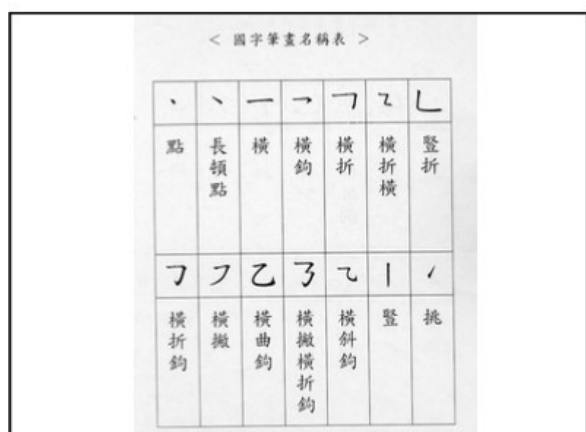 < 國字筆畫名稱表 >
點 長頓點 橫 橫鉤 橫折 橫折橫 豎折
橫折鉤 橫撇 橫曲鉤 橫撇橫折鉤 橫斜鉤 豎 挑